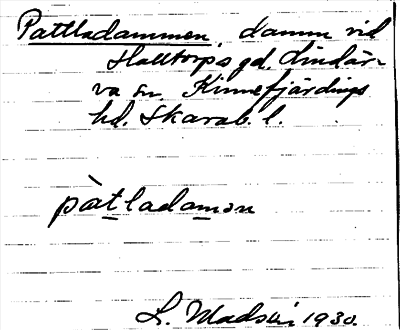 Pattladammen, damm vid
Halltorps gd. Lindär-
va sn. Kinnefjärdings
hd. Skarab. l.
pàt̲ladam̲ən
L. Madsén 1930.